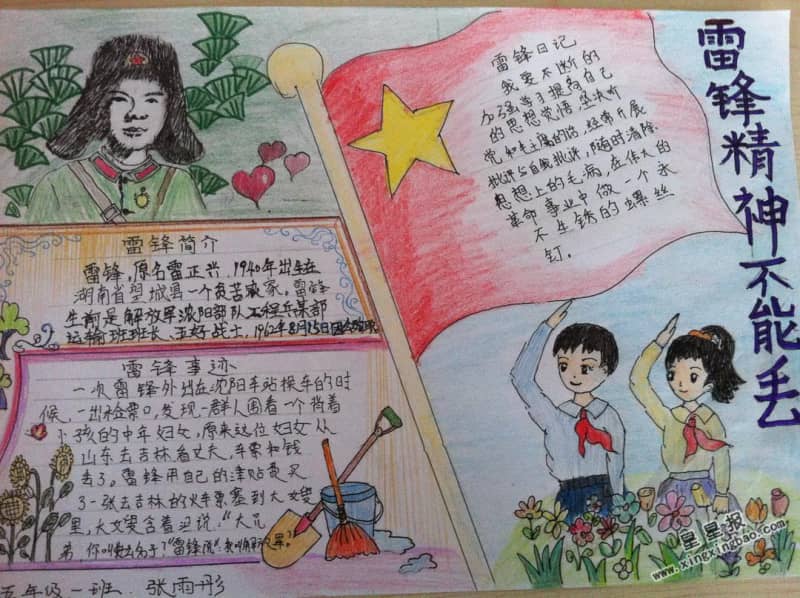 雷锋精神不能丢
雷锋日记
我要不断的
加强学习提高自己
的思想觉悟,坚决听
党和毛主席的话,经常开展
批评与自我批评,随时清除
思想上的毛病,在伟大的
革命事业中做一个永
不生锈的螺丝
钉。
雷锋简介
雷锋,原名雷正兴,1940年出生在
湖南省望城县一个贫苦农家。雷锋
生前是解放军沈阳部队工程兵某部
运输班班长、五好战士,1962年8月15日
雷锋事迹
一次雷锋外出在沈阳车站换车的时
候,一出检票口,发现一群人围着一个背着
小孩的中年妇女,原来这位妇女从
山东去吉林看丈夫,车票和钱
丢了。雷锋用自己的津贴费买
了一张去吉林的火车票塞到大嫂
里,大嫂含着泪说:“大兄
弟,你叫
五年级一班 张雨彤
星星报
www.xingxingbao.com